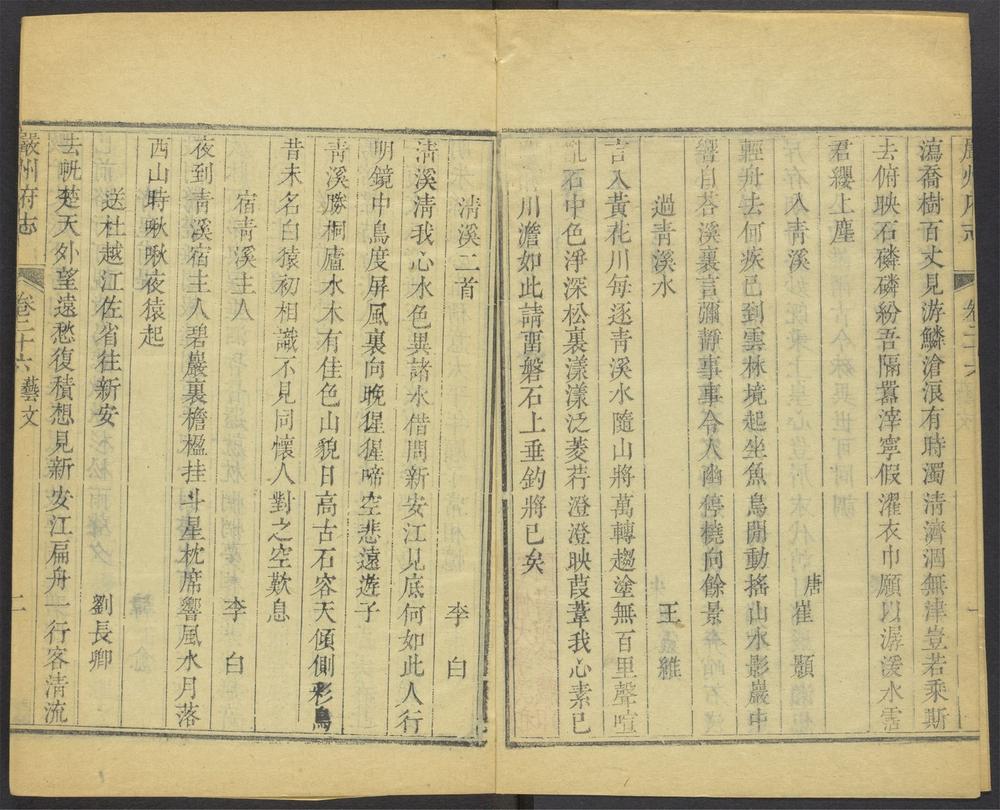 瀉喬樹百丈見游鱗滄浪有時濁清濟涸無津豈若乘斯
去俯映石磷磷紛吾隔囂滓寧假濯衣巾願以潺湲水霑
君纓上塵
入青溪 唐 崔顥
輕舟去何疾已到雲林境起坐魚鳥間動搖山水影巖中
響自荅溪裏言彌靜事事令人幽停橈向餘景
過青溪水 王維
言入黃花川每逐青溪水隨山將萬轉趨塗無百里聲喧
亂石中色淨深松裏漾漾泛菱荇澄澄映葭葦我心素已
川澹如此請畱磐石上垂釣將已矣
清溪二首 李白
清溪清我心水色異諸水借問新安江見底何如此人行
明鏡中鳥度屏風裏向晚猩猩啼空悲遠遊子
青溪勝桐廬水木有佳色山貌日高古石容天傾側彩鳥
昔未名白猿初相識不見同懷人對之空歎息
宿青溪主人 李白
夜到青溪宿主人碧巖裏檐楹挂斗星枕席響風水月落
西山時啾啾夜猿起
送杜越江佐省往新安 劉長卿
去帆楚天外望遠愁復積想見新安江扁舟一行客清流
嚴州府志 卷二十六 藝文 二